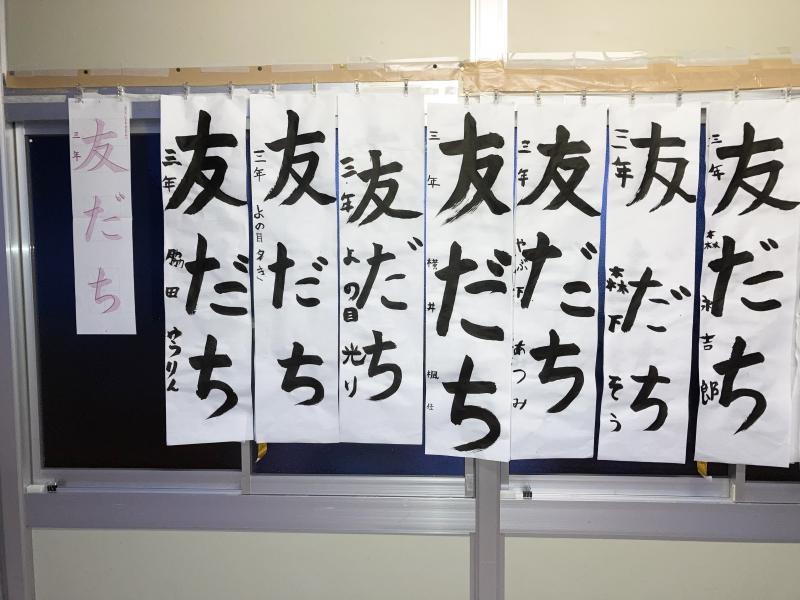 友だち
三年
友だち
三年 脇田 ゆうりん
友だち
三年 よの目 夕き
友だち
三年 よの目 光り
友だち
三年 横井 楓仕
友だち
三年 やぶ下 あつみ
友だち
三年 森下 そう
友だち
三年 森 永吉郎